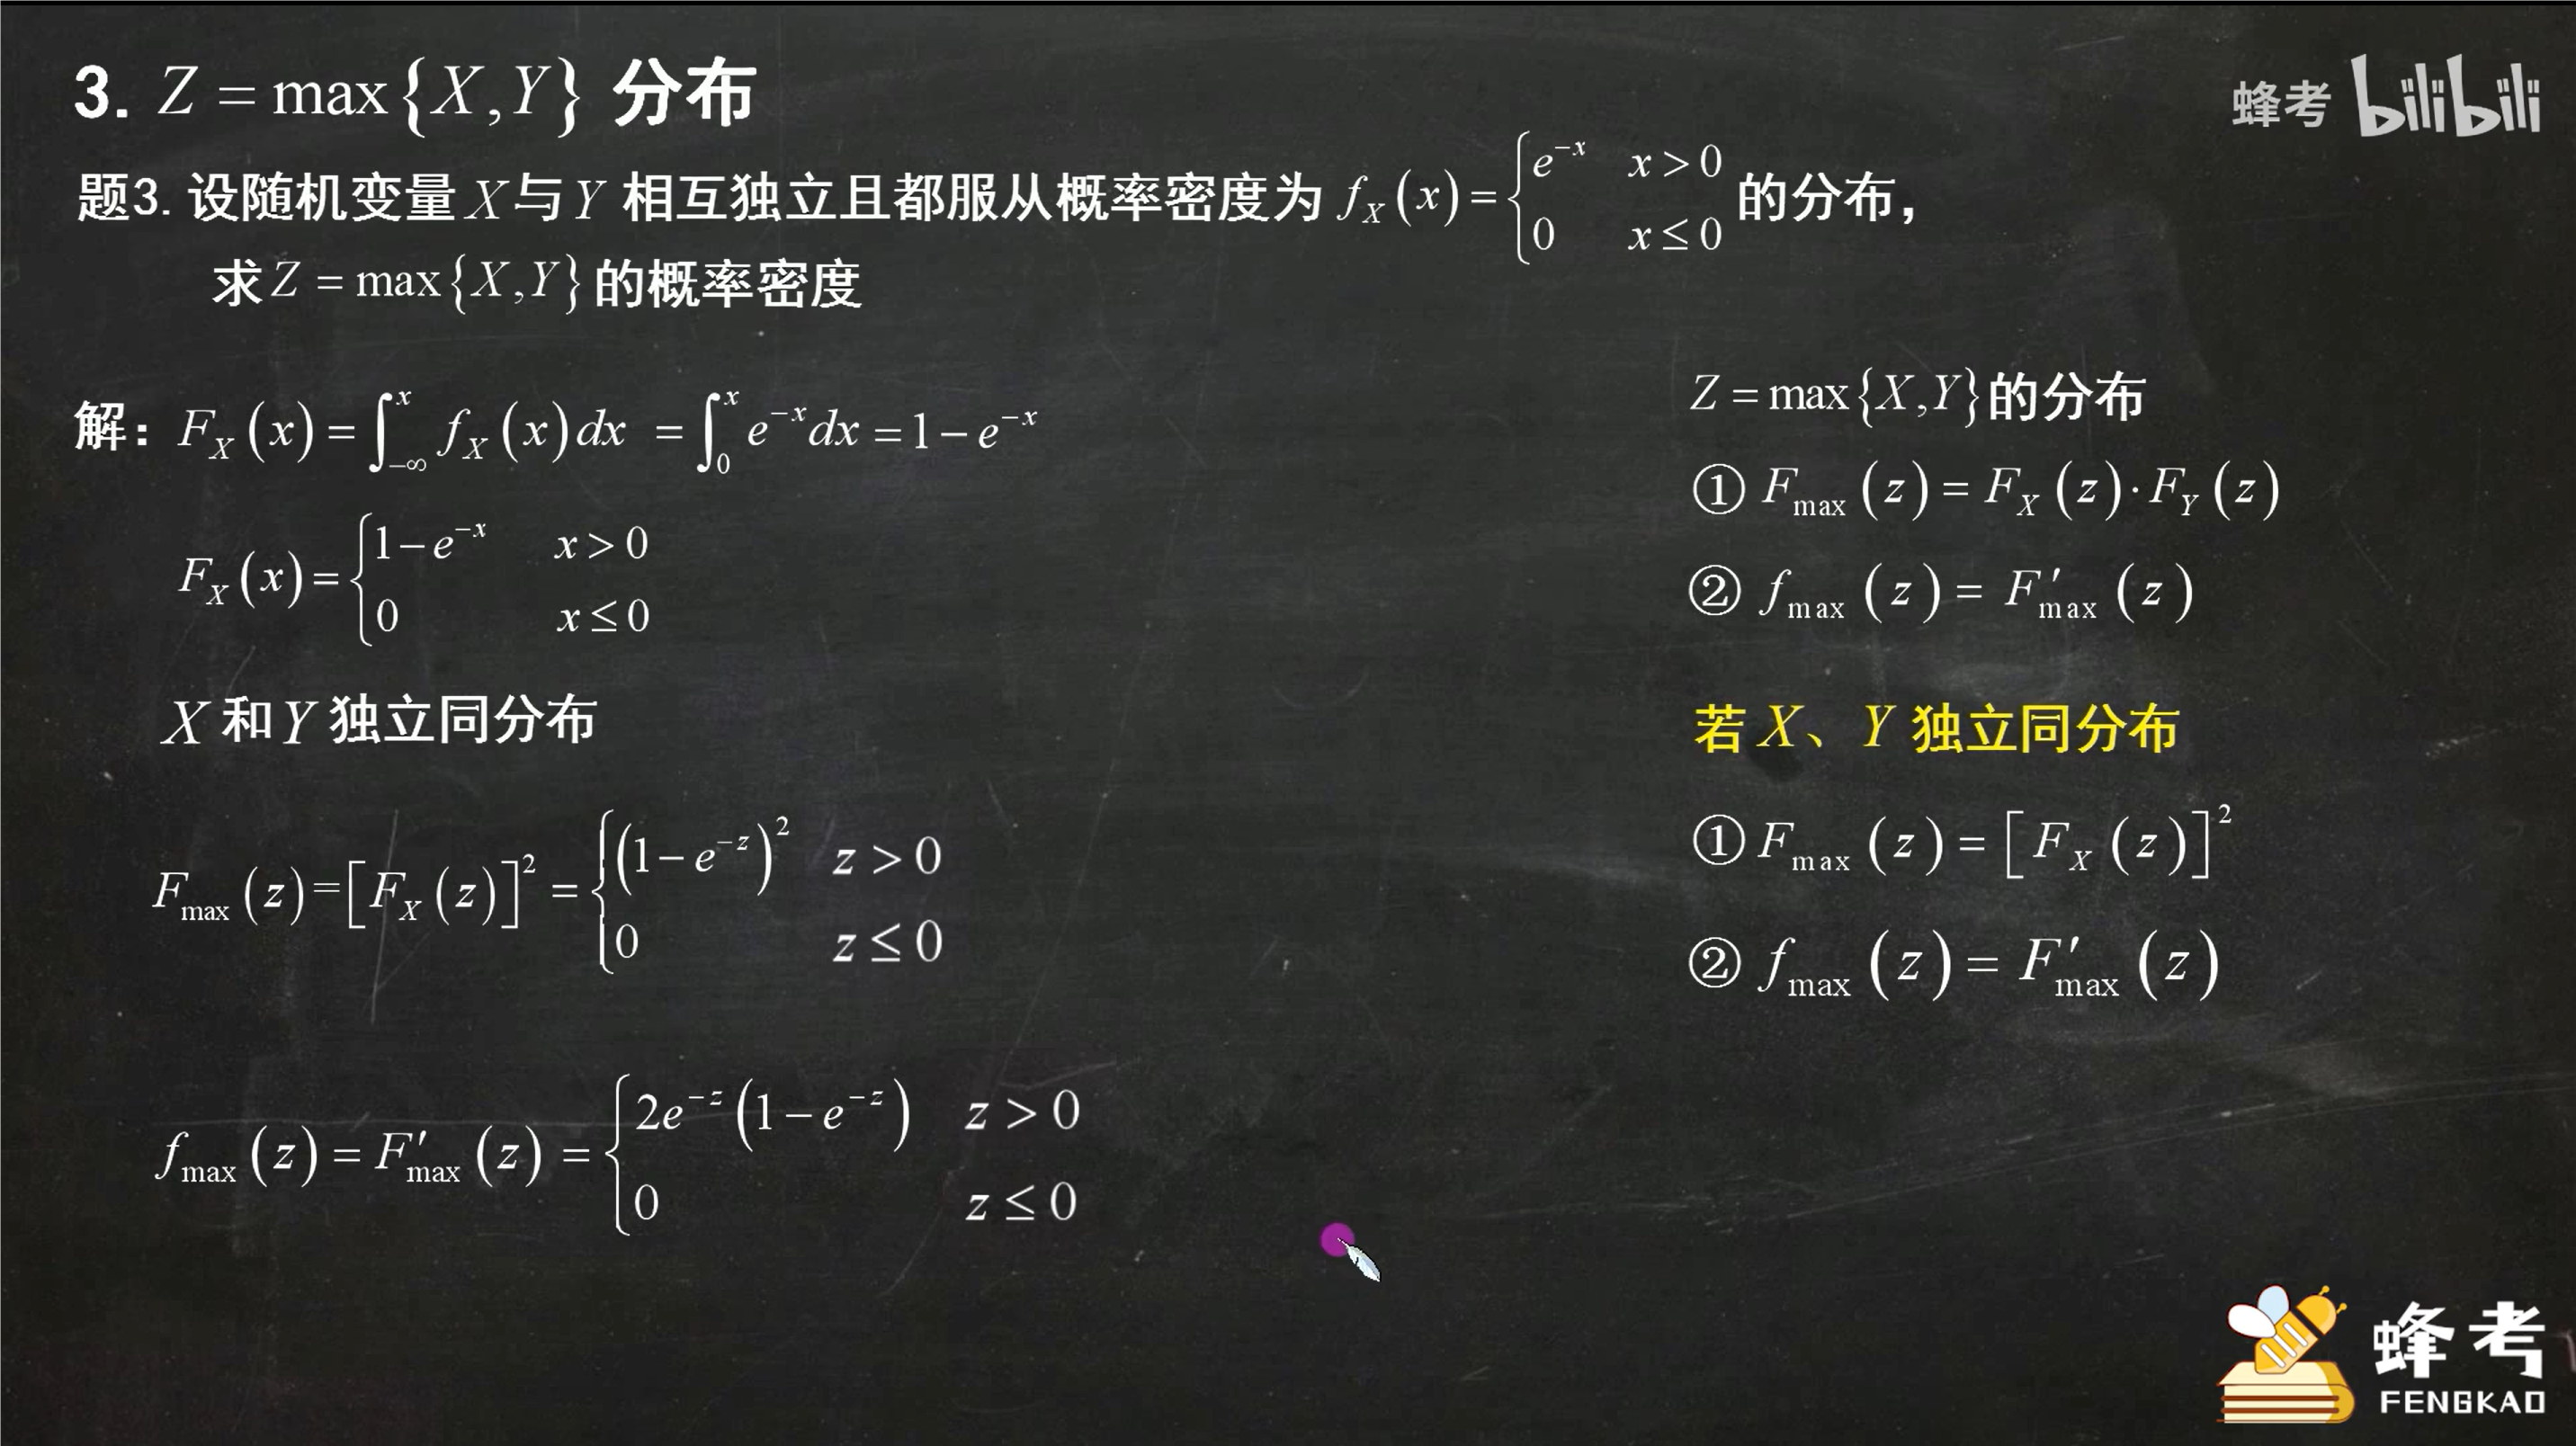 3. Z = max{X,Y} 分布
蜂考 bilibili
题3. 设随机变量 X与Y 相互独立且都服从概率密度为 f_X(x) = { e^{-x} x>0 ; 0 x≤0 的分布，
求 Z = max{X,Y} 的概率密度
解：F_X(x) = ∫_{-∞}^{x} f_X(x)dx = ∫_0^x e^{-x}dx = 1-e^{-x}
F_X(x) = { 1-e^{-x} x>0 ; 0 x≤0
X 和 Y 独立同分布
F_max(z) = [F_X(z)]^2 = { (1-e^{-z})^2 z>0 ; 0 z≤0
f_max(z) = F′_max(z) = { 2e^{-z}(1-e^{-z}) z>0 ; 0 z≤0
Z = max{X,Y}的分布
① F_max(z) = F_X(z)·F_Y(z)
② f_max(z) = F′_max(z)
若 X、Y 独立同分布
① F_max(z) = [F_X(z)]^2
② f_max(z) = F′_max(z)
蜂考
FENGKAO